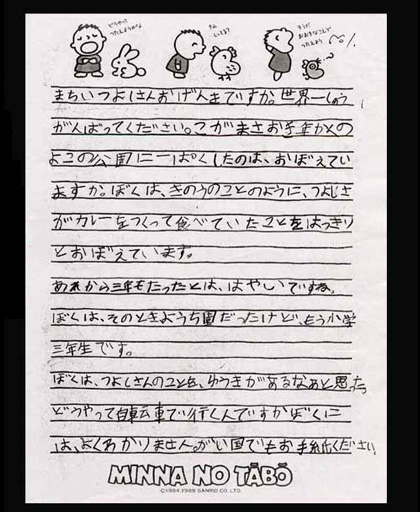 まちいつよしさんおげんきですか。世界一しゅう、
がんばってください。こがまさおき年かんの
よこの公園に一ぱくしたのは、おぼえてい
ますか。ぼくは、きのうのことのように、つよしさ
がカレーをつくって食べていたことをはっきり
とおぼえています。
あれから三年もたったとは、はやいですね。
ぼくは、そのときようち園だったけど、もう小学
三年生です。
ぼくは、つよしさんのことを、ゆうきがあるなあと思
どうやって自転車で行くんですかぼくに
は、よくわかりません。がい国でもお手紙ください。
MINNA NO TĀBŌ
SANRIO CO.,LTD.